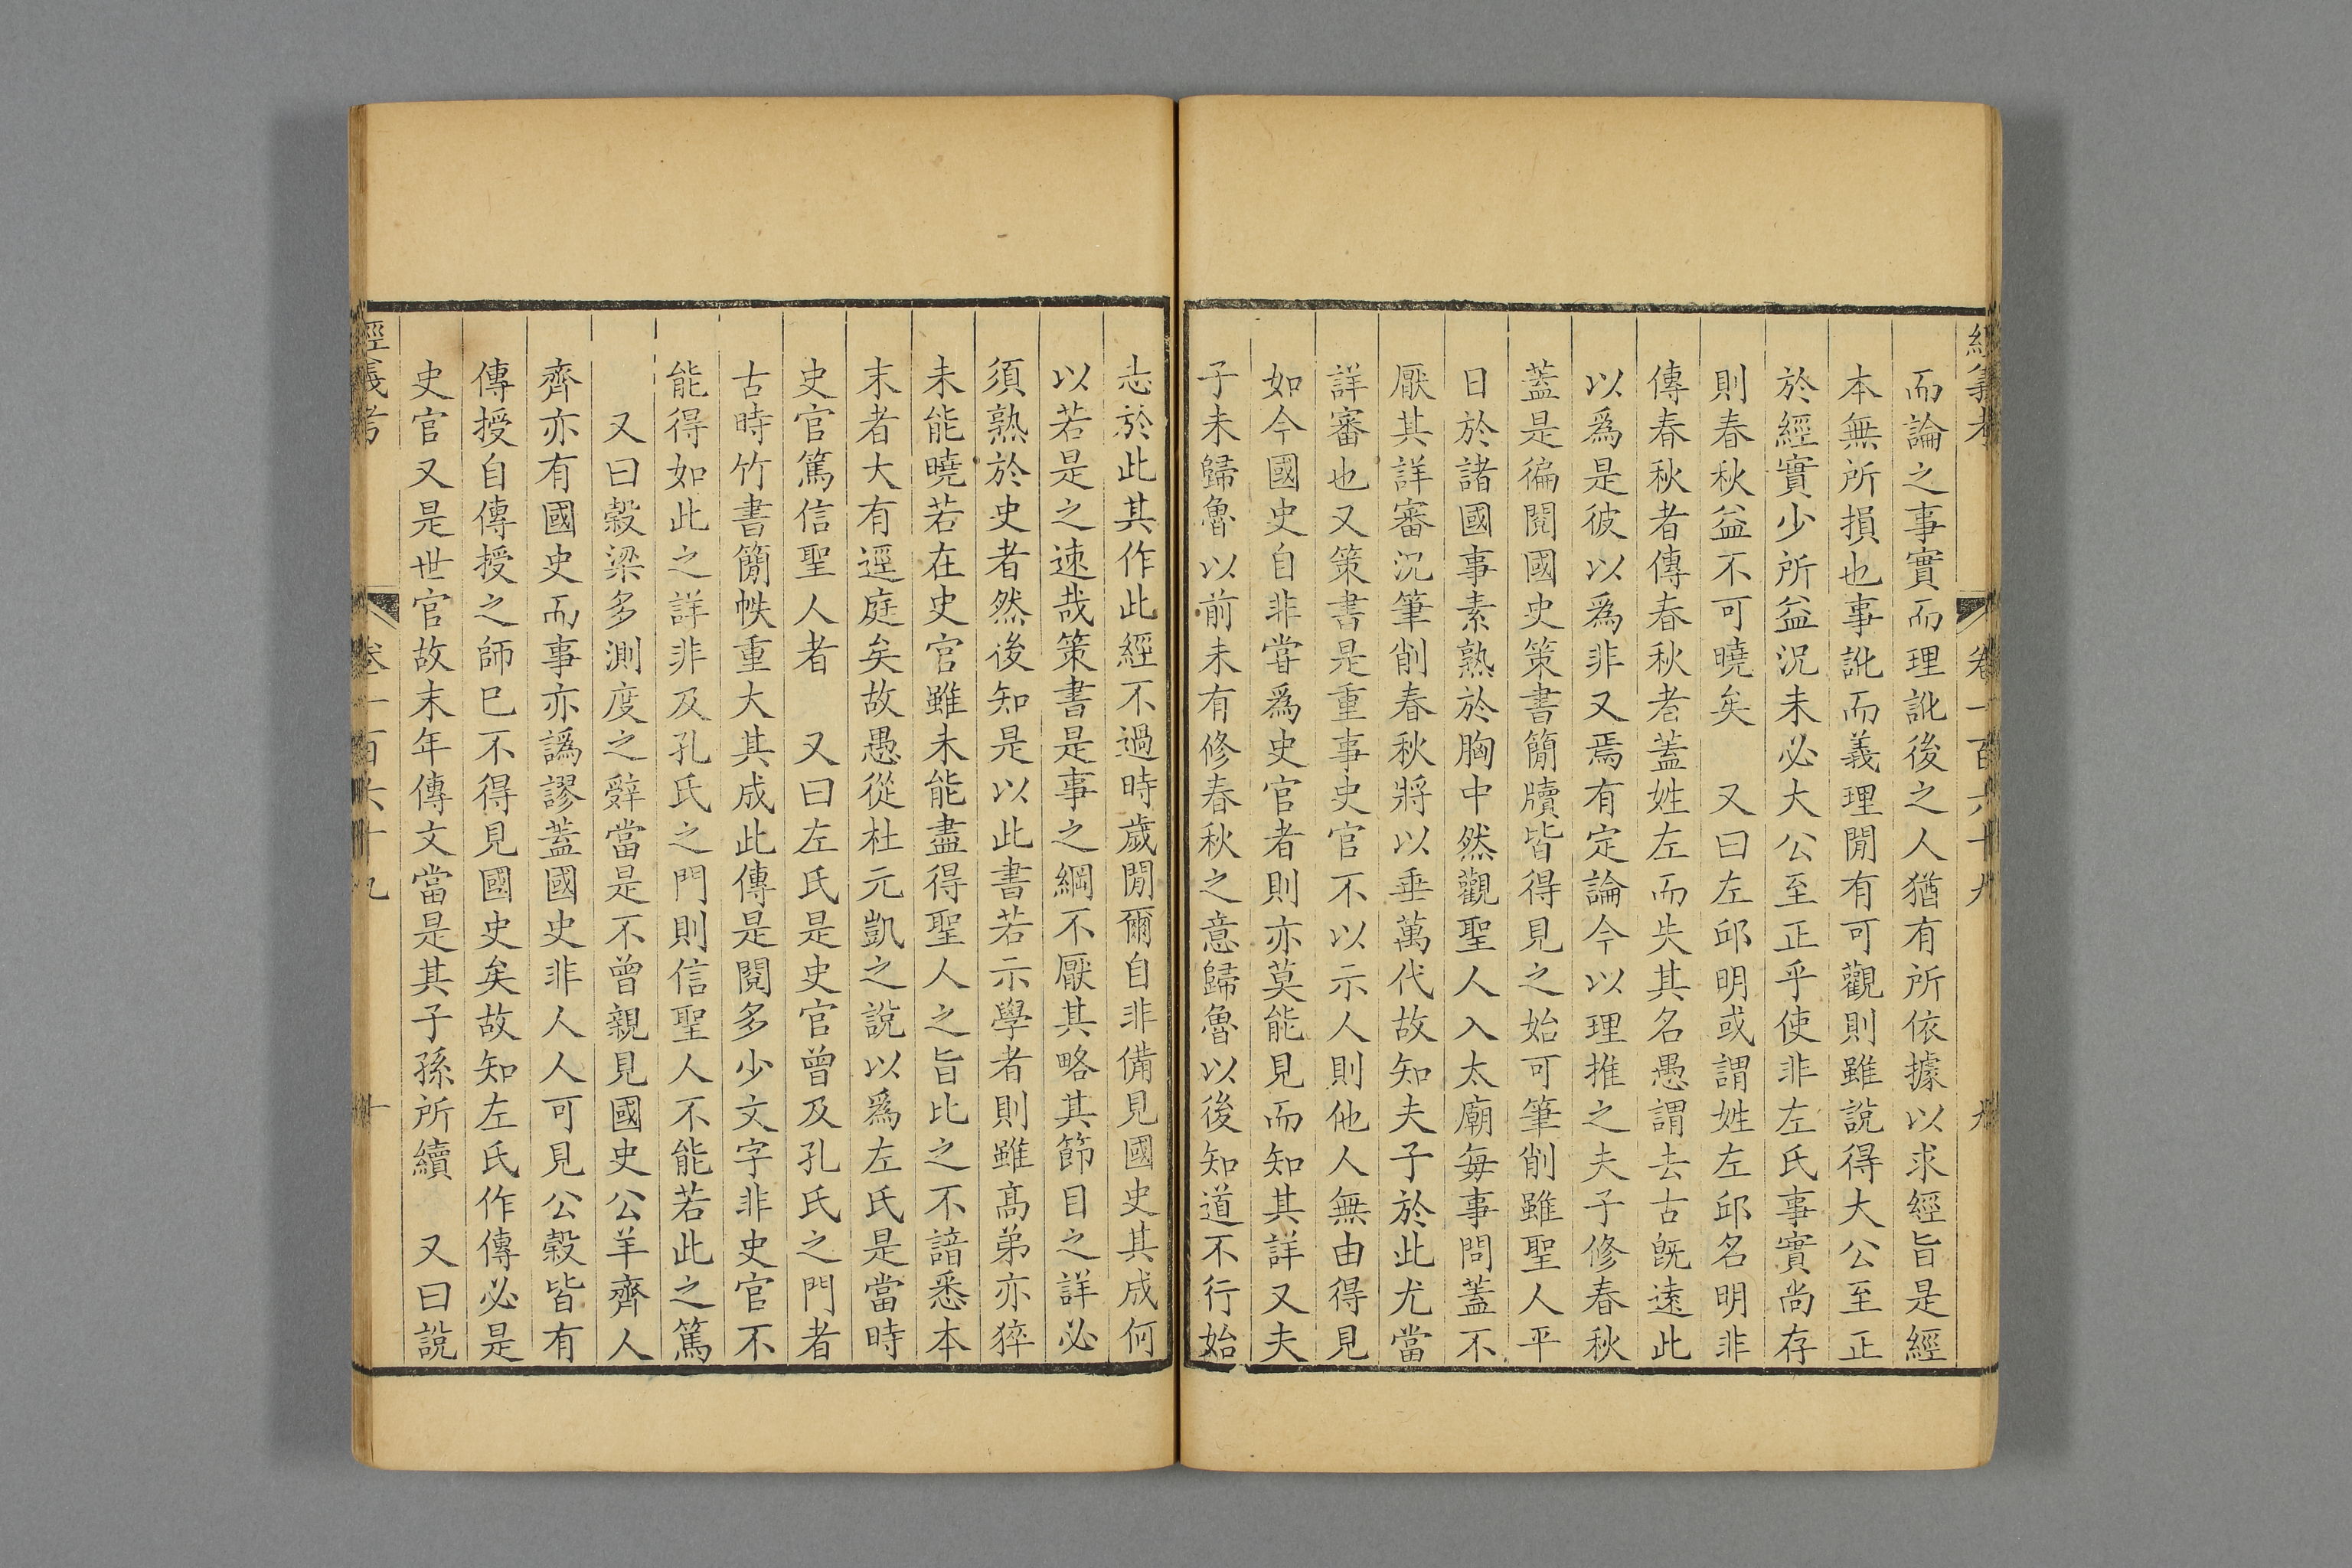 經義考 卷一百六十九 九
而論之事實而理訛後之人猶有所依據以求經旨是經
本無所損也事訛而義理閒有可觀則雖說得大公至正
於經實少所益況未必大公至正乎使非左氏事實尚存
則春秋益不可曉矣 又曰左邱明或謂姓左邱名明非
傳春秋者傳春秋者蓋姓左而失其名愚謂去古旣遠此
以爲是彼以爲非又焉有定論今以理推之夫子修春秋
蓋是徧閱國史策書簡牘皆得見之始可筆削雖聖人平
日於諸國事素熟於胸中然觀聖人入太廟每事問蓋不
厭其詳審況筆削春秋將以垂萬代故知夫子於此尤當
詳審也又策書是重事史官不以示人則他人無由得見
如今國史自非嘗爲史官者則亦莫能見而知其詳又夫
子未歸魯以前未有修春秋之意歸魯以後知道不行始
志於此其作此經不過時歲閒爾自非備見國史其成何
以若是之速哉策書是事之綱不厭其略其節目之詳必
須熟於史者然後知是以此書若示學者則雖高弟亦猝
未能曉若在史官雖未能盡得聖人之旨比之不諳悉本
末者大有逕庭矣故愚從杜元凱之說以爲左氏是當時
史官篤信聖人者 又曰左氏是史官曾及孔氏之門者
古時竹書簡帙重大其成此傳是閱多少文字非史官不
能得如此之詳非及孔氏之門則信聖人不能若此之篤
又曰穀梁多測度之辭當是不曾親見國史公羊齊人
齊亦有國史而事亦譌謬蓋國史非人人可見公穀皆有
傳授自傳授之師已不得見國史矣故知左氏作傳必是
史官又是世官故末年傳文當是其子孫所續 又曰說
經義考 卷一百六十九 十